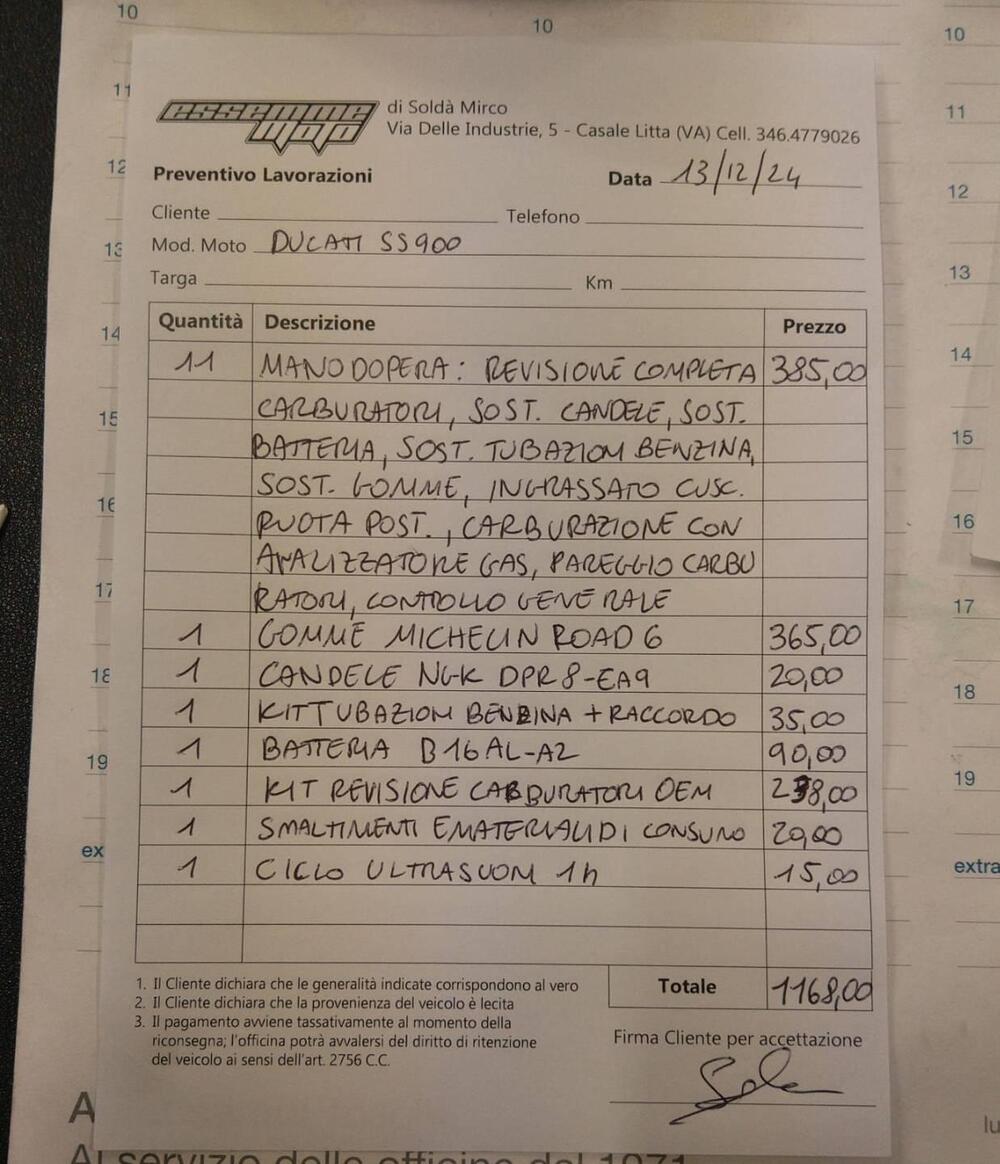 10
10
10
11
11
essemme moto
di Soldà Mirco
Via Delle Industrie, 5 - Casale Litta (VA) Cell. 346.4779026
12
Preventivo Lavorazioni
Data 13/12/24
12
Cliente
Telefono
13
Mod. Moto DUCATI SS900
13
Targa
Km
14
Quantità Descrizione Prezzo
14
11 MANODOPERA: REVISIONE COMPLETA 385,00
15
CARBURATORI, SOST. CANDELE, SOST.
15
BATTERIA, SOST. TUBAZIONI BENZINA,
SOST. GOMME, INGRASSATO CUSC.
16
RUOTA POST., CARBURAZIONE CON
16
ANALIZZATORE GAS, PAREGGIO CARBU
17
RATORI, CONTROLLO GENERALE
17
1 GOMME MICHELIN ROAD 6 365,00
18
1 CANDELE NGK DPR8-EA9 20,00
18
1 KIT TUBAZIONI BENZINA + RACCORDO 35,00
19
1 BATTERIA B16AL-A2 90,00
19
1 KIT REVISIONE CARBURATORI OEM 238,00
1 SMALTIMENTI E MATERIALI DI CONSUMO 20,00
ex
extra
1 CICLO ULTRASUONI 1h 15,00
1. Il Cliente dichiara che le generalità indicate corrispondono al vero
2. Il Cliente dichiara che la provenienza del veicolo è lecita
3. Il pagamento avviene tassativamente al momento della
riconsegna; l'officina potrà avvalersi del diritto di ritenzione
del veicolo ai sensi dell'art. 2756 C.C.
Totale 1168,00
Firma Cliente per accettazione
A
lu
Al servizio delle officine dal 1971